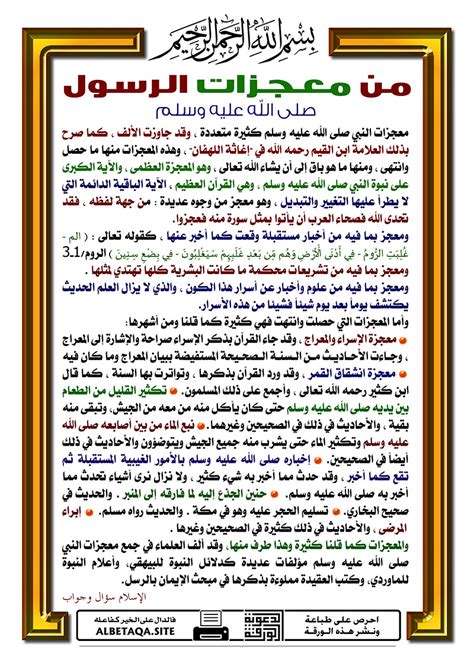 بسم الله الرحمن الرحيم
من معجزات الرسول
صلى الله عليه وسلم
معجزات النبي صلى الله عليه وسلم كثيرة متعددة ، وقد جاوزت الألف ، كما صرح
بذلك العلامة ابن القيم رحمه الله في "إغاثة اللهفان"، وهذه المعجزات منها ما حصل
وانتهى ، ومنها ما هو باق إلى أن يشاء الله تعالى ، وهو المعجزة العظمى ، والآية الكبرى
على نبوة النبي صلى الله عليه وسلم ، وهي القرآن العظيم ، الآية الباقية الدائمة التي
لا يطرأ عليها التغيير والتبديل ، وهو معجز من وجوه عديدة : من جهة لفظه ، فقد
تحدى الله فصحاء العرب أن يأتوا بمثل سورة منه فعجزوا.
ومعجز بما فيه من أخبار مستقبلة وقعت كما أخبر عنها ، كقوله تعالى : ( الم -
غُلِبَتِ الرُّومُ - فِي أَدْنَى الْأَرْضِ وَهُم مِّن بَعْدِ غَلَبِهِمْ سَيَغْلِبُونَ - فِي بِضْعِ سِنِينَ ) الروم/3.1
ومعجز بما فيه من تشريعات محكمة ما كانت البشرية كلها تهتدي لمثلها .
ومعجز بما فيه من علوم وأخبار عن أسرار هذا الكون ، والذي لا يزال العلم الحديث
يكتشف يوماً بعد يوم شيئاً فشيئا من هذه الأسرار.
وأما المعجزات التي حصلت وانتهت فهي كثيرة كما قلنا ومن أشهرها:
• معجزة الإسراء والمعراج ، وقد جاء القرآن بذكر الإسراء صراحة والإشارة إلى المعراج
، وجاءت الأحاديث من السنة الصحيحة المستفيضة ببيان المعراج وما كان فيه
• معجزة انشقاق القمر ، وقد ورد القرآن بذكرها ، وتواترت بها السنة ، كما قال
ابن كثير رحمه الله تعالى ، وأجمع على ذلك المسلمون. • تكثير القليل من الطعام
بين يديه صلى الله عليه وسلم حتى كان يأكل منه من معه من الجيش، وتبقى منه
بقية ، والأحاديث في ذلك في الصحيحين وغيرهما. • نبع الماء من بين أصابعه صلى الله
عليه وسلم وتكثير الماء حتى يشرب منه جميع الجيش ويتوضؤون والأحاديث في ذلك
أيضاً في الصحيحين. • إخباره صلى الله عليه وسلم بالأمور الغيبية المستقبلة ثم
تقع كما أخبر ، وقد حدث مما أخبر به شيء كثير ، ولا نزال نرى أشياء تحدث مما
أخبر به صلى الله عليه وسلم . • حنين الجذع إليه لما فارقه إلى المنبر . والحديث في
صحيح البخاري. • تسليم الحجر عليه وهو في مكة . والحديث رواه مسلم. • إبراء
المرضى ، والأحاديث في ذلك كثيرة في الصحيحين وغيرها .
والمعجزات كما قلنا كثيرة وهذا طرف منها، وقد ألف العلماء في جمع معجزات النبي
صلى الله عليه وسلم مؤلفات عديدة كدلائل النبوة للبيهقي، وأعلام النبوة
للماوردي، وكتب العقيدة مملوءة بذكرها في مبحث الإيمان بالرسل.
الإسلام سؤال وجواب
احرص على طباعة
ونشر هذه الورقة
الورقة الدعوية
فالدال على الخير كفاعله
ALBETAQA.SITE